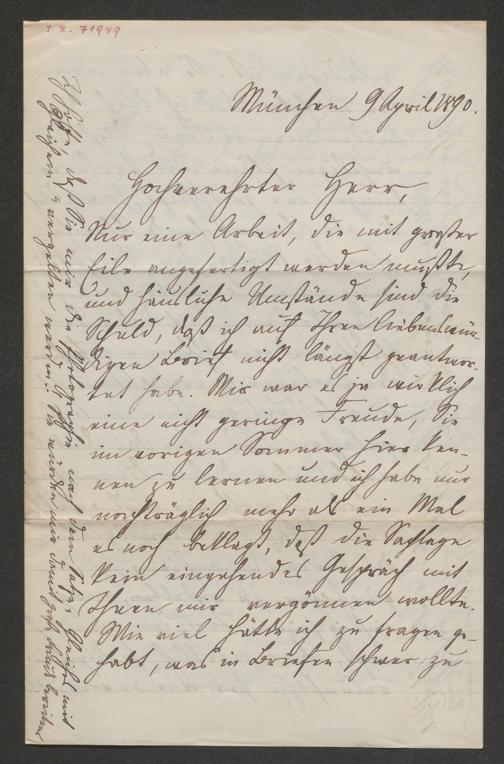 I. N. 71949
München 9 April 1890.
Hochverehrter Herr,
Nur eine Arbeit, die mit großer
Eile angefertigt werden mußte,
und häusliche Umstände sind die
Schuld, daß ich auf Ihren liebenswür-
digen Brief nicht längst geantwor-
tet habe. Mir war es ja wirklich
eine nicht geringe Freude, Sie
im vorigen Sommer hier ken-
nen zu lernen und ich habe nur
nachträglich mehr als ein Mal
es noch beklagt, daß die Sachlage
kein eingehendes Gespräch mit
Ihnen mir vergönnen wollte.
Wie viel hätte ich zu fragen ge-
habt, was in Briefen schwer zu
daß Sie mir die Photographie nach dem
vergelten werden! Sie würden mir damit große Freude bereiten